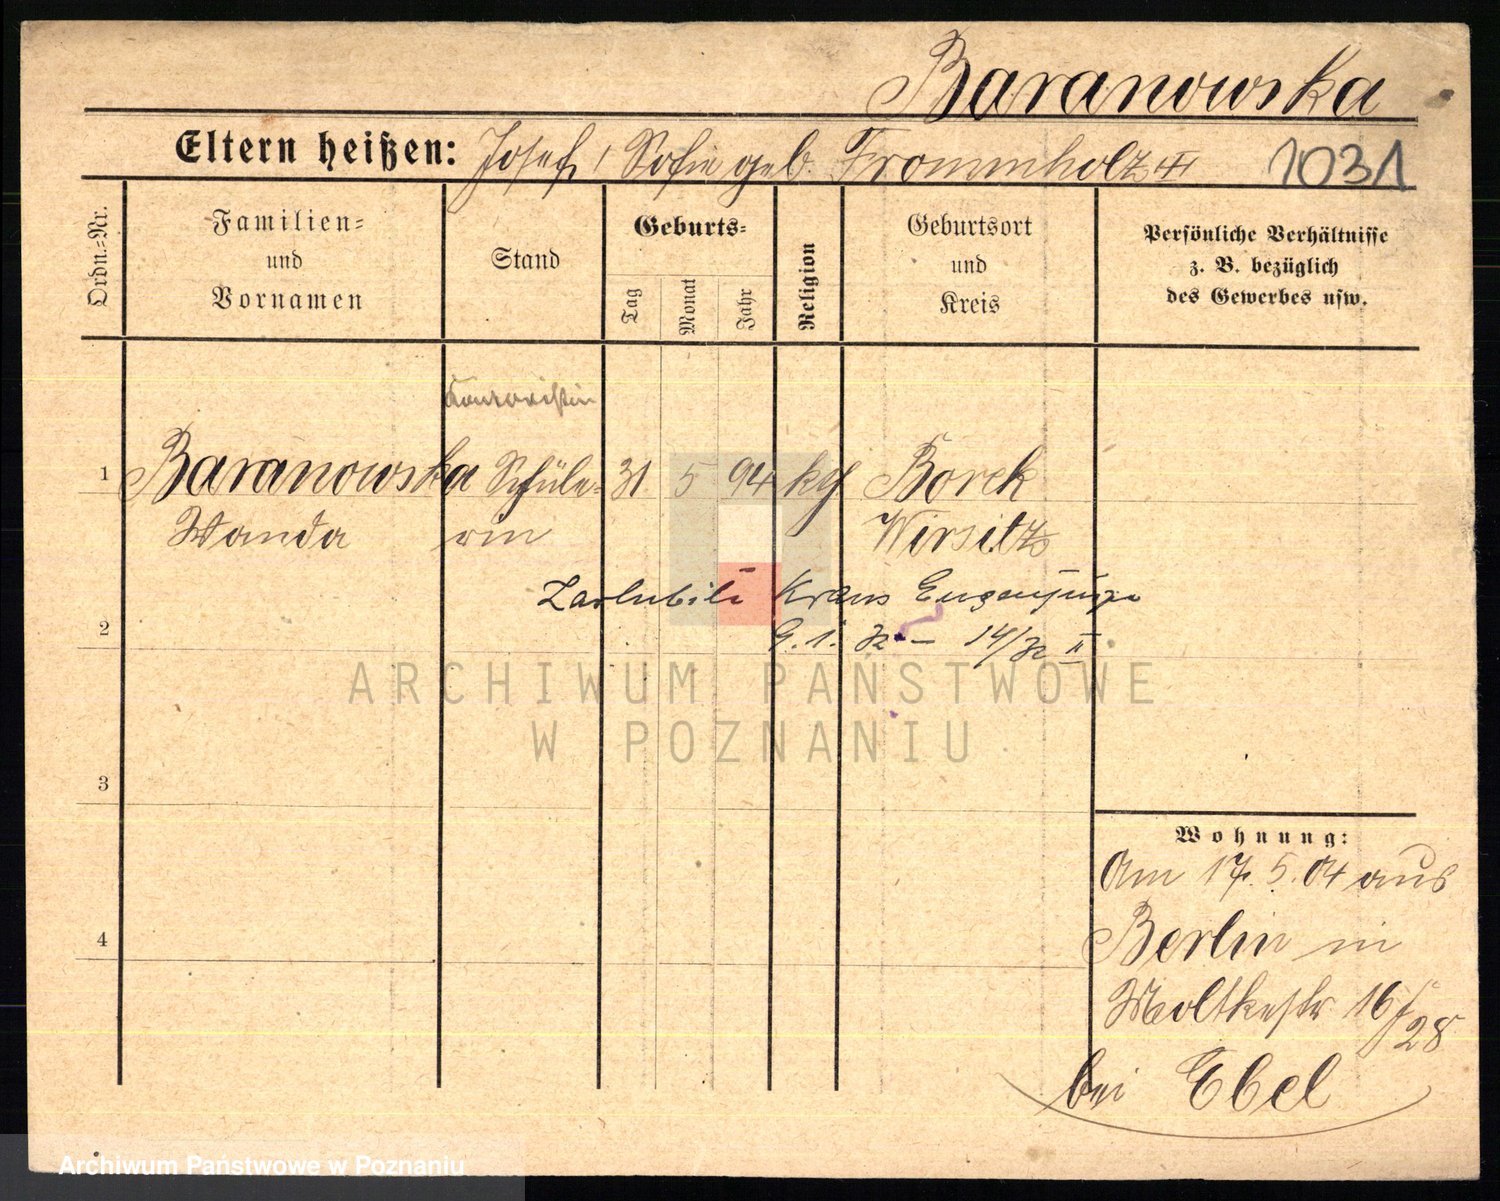 Baranowska
Eltern heißen: Josef, Sofie geb. Frommholz
1031
Ordn.-Nr.
Familien-
und
Vornamen
Stand
Geburts-
Tag
Monat
Jahr
Religion
Geburtsort
und
Kreis
Persönliche Verhältnisse
z. B. bezüglich
des Gewerbes usw.
Kontoristin
1 Baranowska Schüle- 31 5 94 kth Borek
Wanda rin Wirsitz
Kraus
2
14/
II
ARCHIWUM PAŃSTWOWE
W POZNANIU
3
Wohnung:
Am 17. 5. 04 aus
4
Berlin in
Moltkestr 16/
28
bei Ebel
Archiwum Państwowe w Poznaniu